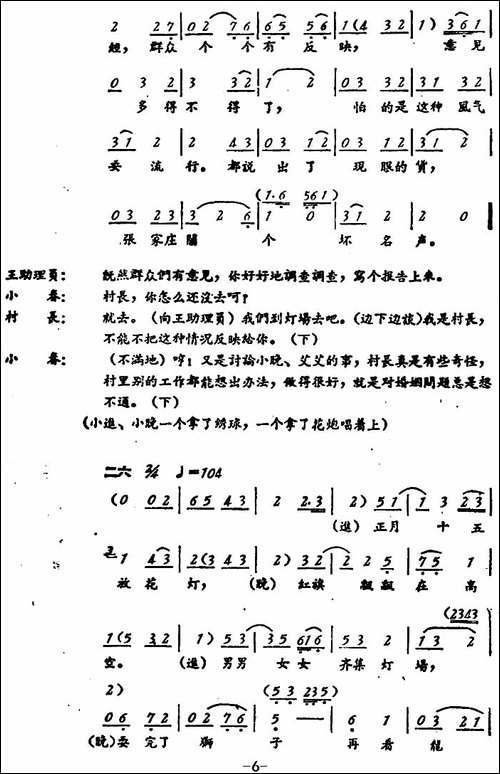 2 2 7 | 0 2 7 6 | 6 5 5 6 | 1 (4 3 2 | 1) 3 6 1 |
群众 个 个 有 反 映， 意 见
0 3 2 | 3 3 2 | 1 2 | 0 3 3 2 | 3 1 3 2 |
多 得 不 得 了， 怕 的 是 这 种 風 气
3 1 2 | 2 4 3 | 0 3 1 2 | 0 3 1 2 | 3 1 2 |
要 流 行。 都 說 出 了 現 眼 的 貨，
(1·6 5 6 1)
0 3 2 3 | 3 2 6 | 1 0 | 3 1 2 | 2 0 |
張 家 庄 鬧 个 坏 名 声。
王助理員： 既然群众們有意見，你好好地調查調查，寫个报告上来。
小 春： 村長，你怎么还沒去呵？
村 長： 就去。（向王助理員）我們到灯場去吧。（边下边談）我是村長，
不能不把这种情况反映給你。（下）
小 春： （不滿地）哼！又是討論小晚、艾艾的事，村長真是有些奇怪，
村里别的工作都能想出办法，做得很好，就是对婚姻問題总是想
不通。（下）
（小進、小晚一个拿了绣球，一个拿了花炮唱着上）
二六 2/4 ♩=104
(0 0 2 | 6 5 4 3 | 2 2·3 | 2) 5 1 | 1 3 2 3 |
（進）正月 十 五
3 1 4 3 | 2 (3 4 3 | 2) 3 2 | 2 2 5 | 7 5 1 |
放 花 灯， （晚）紅旗 飄 飄 在 高
(2343
1 (5 3 2 | 1) 5 3 | 3 5 6 1 6 | 5 3 2 | 1 3 2 |
空。 （進）男男 女 女 齐集 灯 場，
2) (5 3 2 3 5)
0 6 7 2 | 0 2 7 6 | 5 — | 6 1 | 0 3 2 1 |
（晚）耍 完 了 獅 子 再 看 龍
-6-